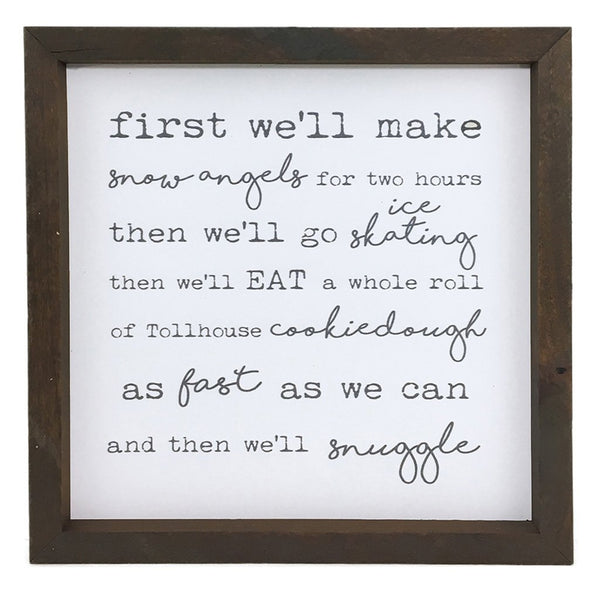 first we'll make
snow angels for two hours
then we'll go ice skating
then we'll EAT a whole roll
of Tollhouse cookiedough
as fast as we can
and then we'll snuggle